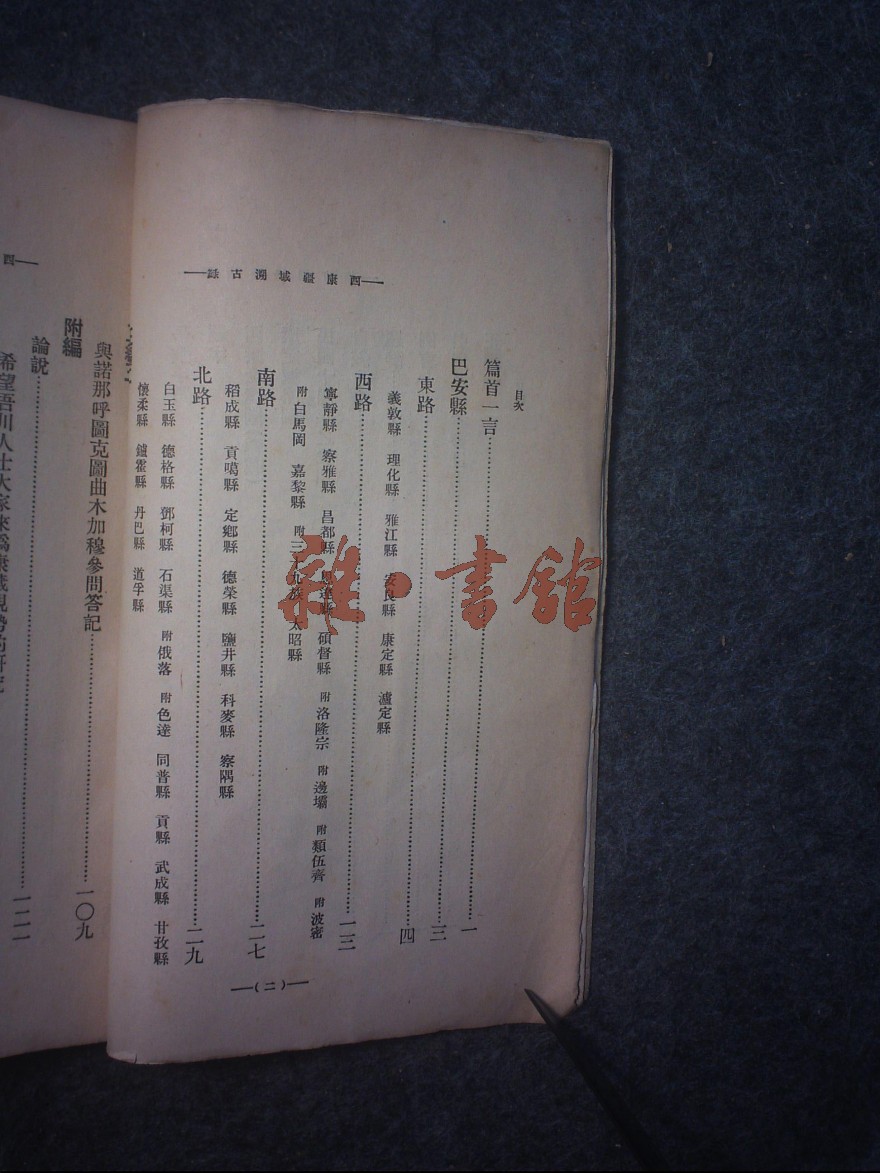 西康疆域溯古錄
目次
篇首一言 一
巴安縣 三
東路 四
義敦縣 理化縣 雅江縣 安良縣 康定縣 瀘定縣
西路 一三
寧靜縣 察雅縣 昌都縣 恩達縣 碩督縣 附洛隆宗 附邊壩 附類伍齊 附波密
附白馬岡 嘉黎縣 附三十九族 太昭縣
南路 二七
稻成縣 貢噶縣 定鄉縣 德榮縣 鹽井縣 科麥縣 察隅縣
北路 二九
白玉縣 德格縣 鄧柯縣 石渠縣 附俄落 附色達 同普縣 貢縣 武成縣 甘孜縣
懷柔縣 鑪霍縣 丹巴縣 道孚縣
(二)
與諾那呼圖克圖曲木加穆參問答記 一〇九
附編
論說 一二一
四
雜·書館